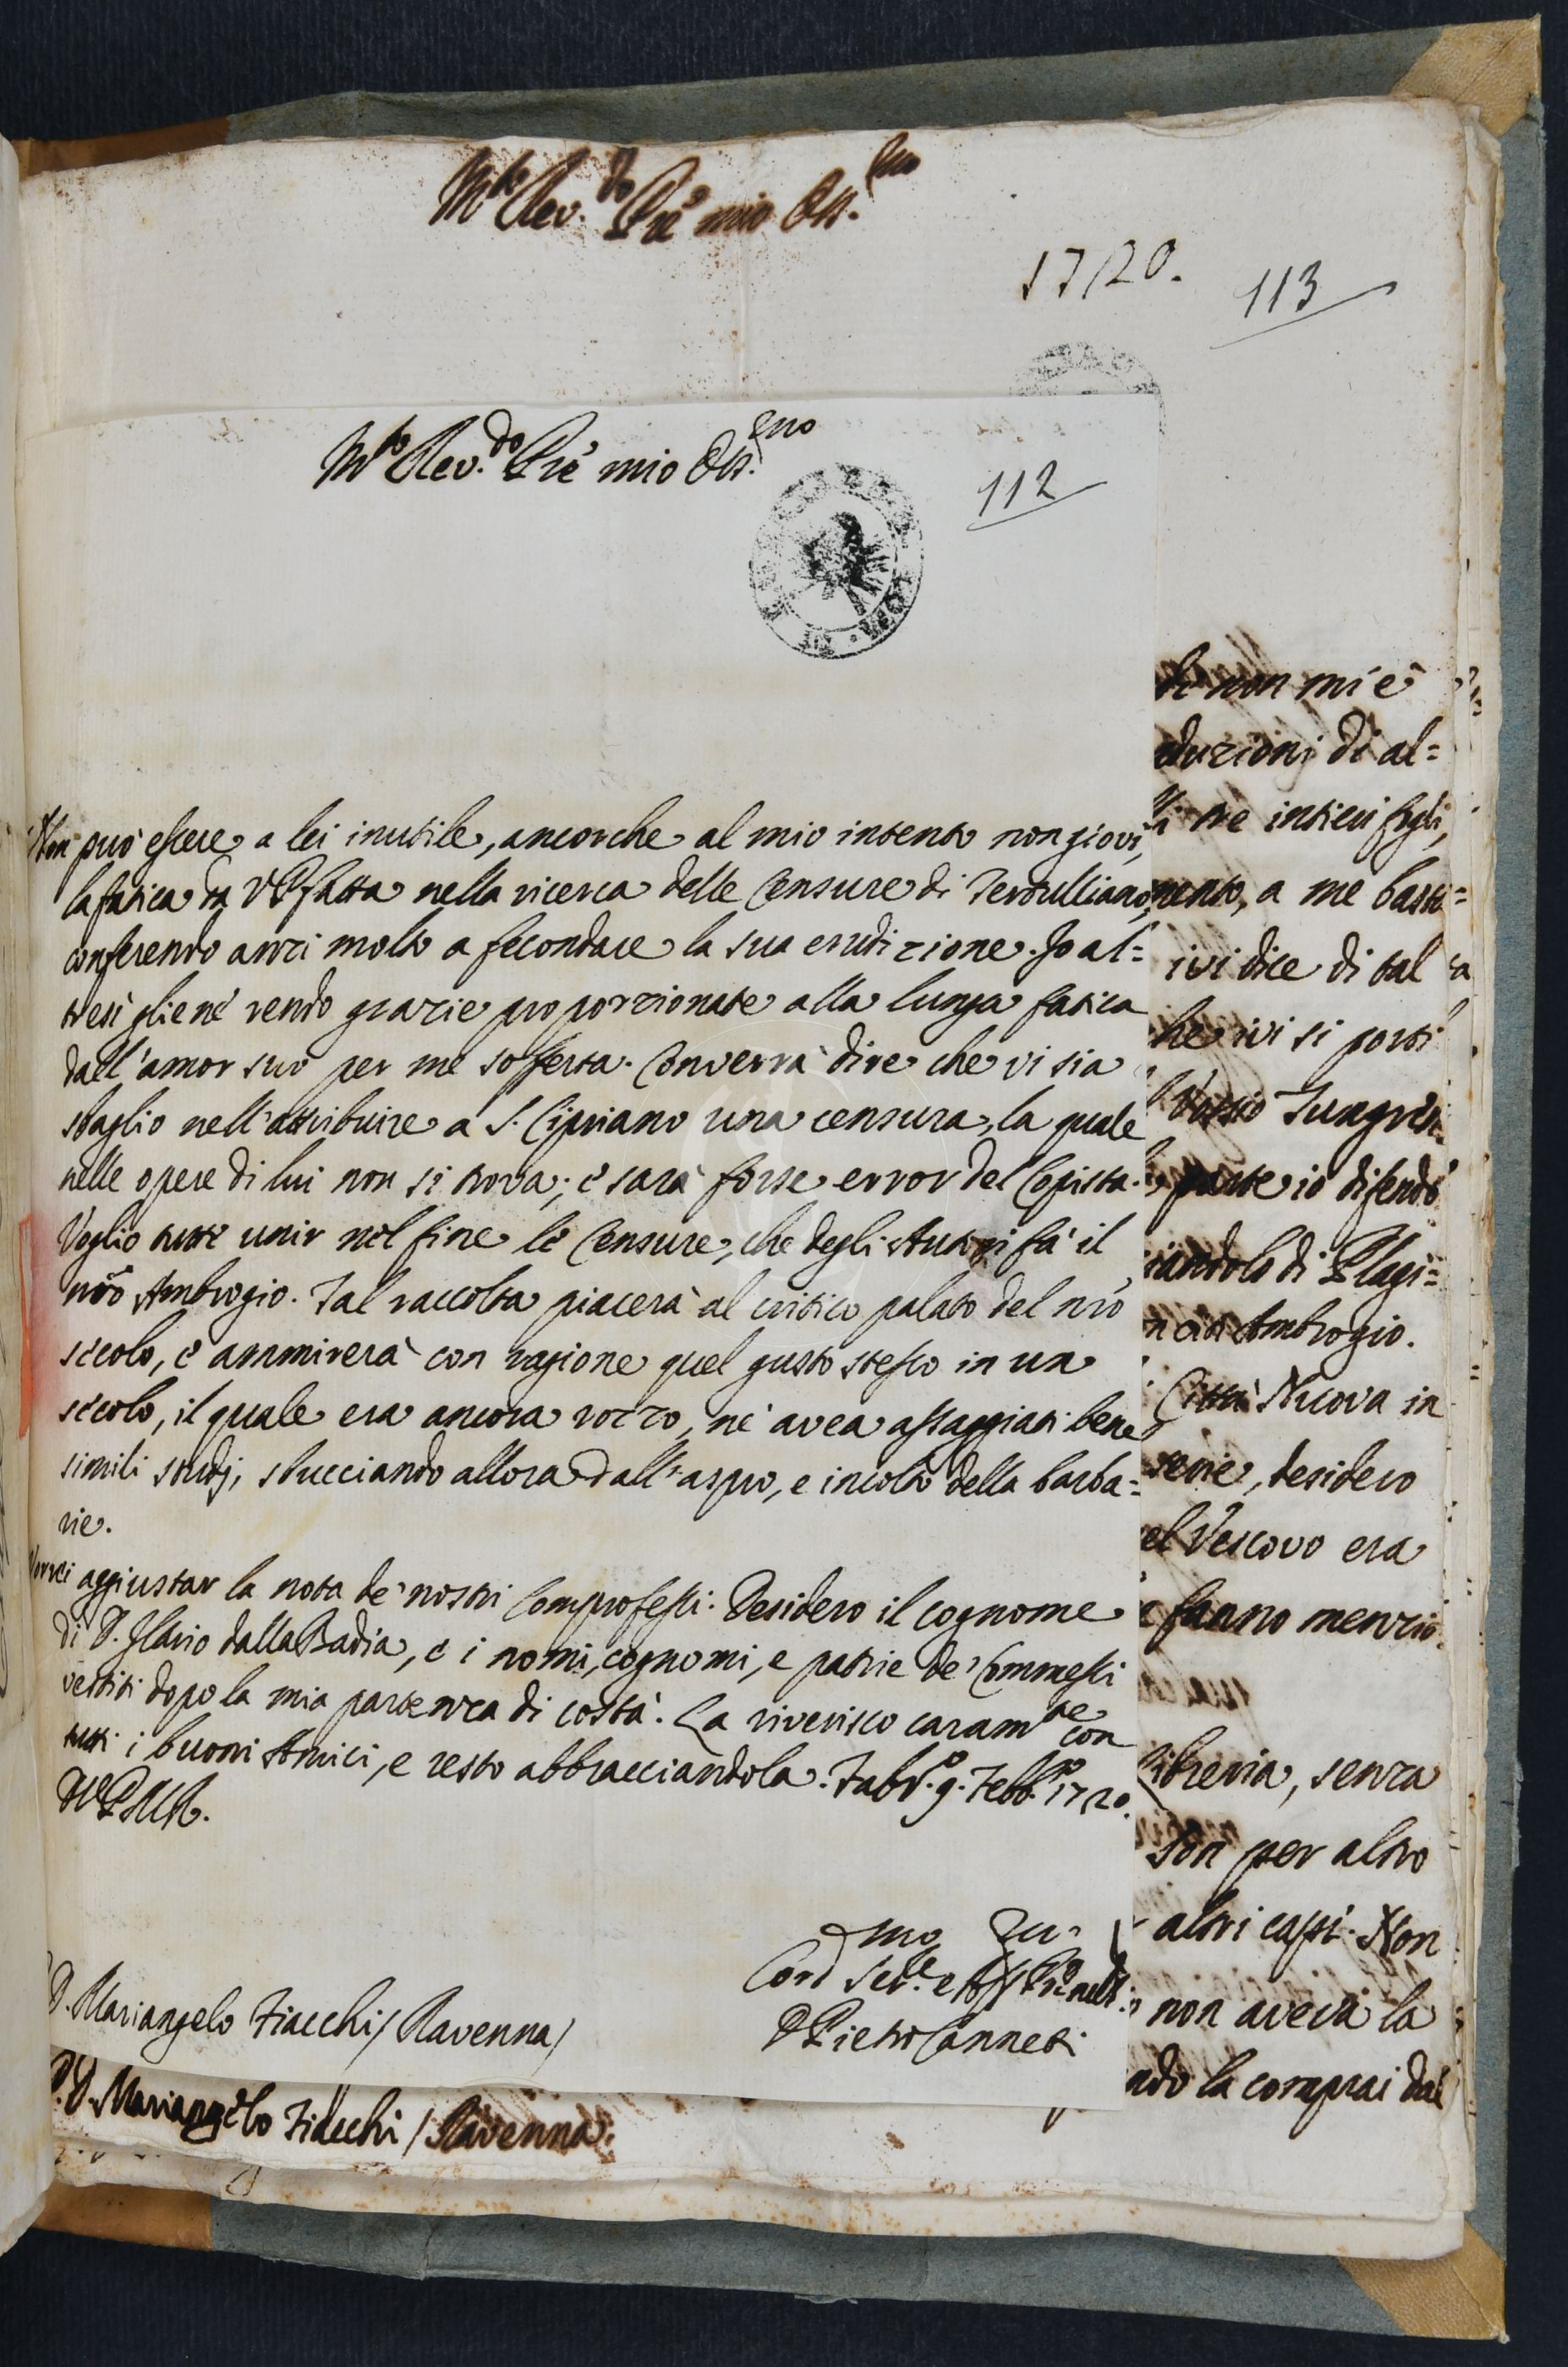 Mto Rev.do Pre mio Oss.mo
1720.
113
Mto Rev.do Pre mio Oss.mo
112
Non può essere a lei inutile, ancorche al mio intento non giovi,
la fatica da VP fatta nella ricerca delle Censure di Tertulliano,
conferendo anzi molto a fecondare la sua erudizione. Io al=
tresì gliene rendo grazie proporzionate alla lunga fatica
dall'amor suo per me sofferta. Converrà dire che vi sia
sbaglio nell'attribuire a S. Cipriano una censura, la quale
nelle opere di lui non si trova; e sarà forse error del Copista.
Voglio tutte unir nel fine le Censure, che degli Autori fà il
nro Ambrogio. Tal raccolta piacerà al critico palato del nro
secolo, e ammirerà con ragione quel gusto stesso in un
secolo, il quale era ancora rozzo, nè avea assaggiati bene
simili studj, sbucciando allora dall'aspro, e incolto della barba=
rie.
Vorrei aggiustar la nota de' nostri Comprofessi. Desidero il cognome
di D. Ilario dalla Badia, e i nomi, cognomi, e patrie de' Commessi
vestiti dopo la mia partenza di costà. La riverisco caramte con
tutti i buoni Amici, e resto abbracciandola. Fabr.o 9. Febb.ro 1720.
Cord
D Pietro Canneti
D. Mariangelo Fiacchi / Ravenna /
P. D. Mariangelo Fiacchi / Ravenna.
non mi è
duzioni di al=
tre intieri fogli,
mento, a me basti=
ivi dice di tal
he ivi si porti
parte io difendo
iandolo di Plagi=
Ambrogio.
Città Nuova in
serie, desidero
el Vescovo era
fanno menzio
libreria, senza
son per altro
altri cassi. Non
non aveva la
ndo la comprai dal